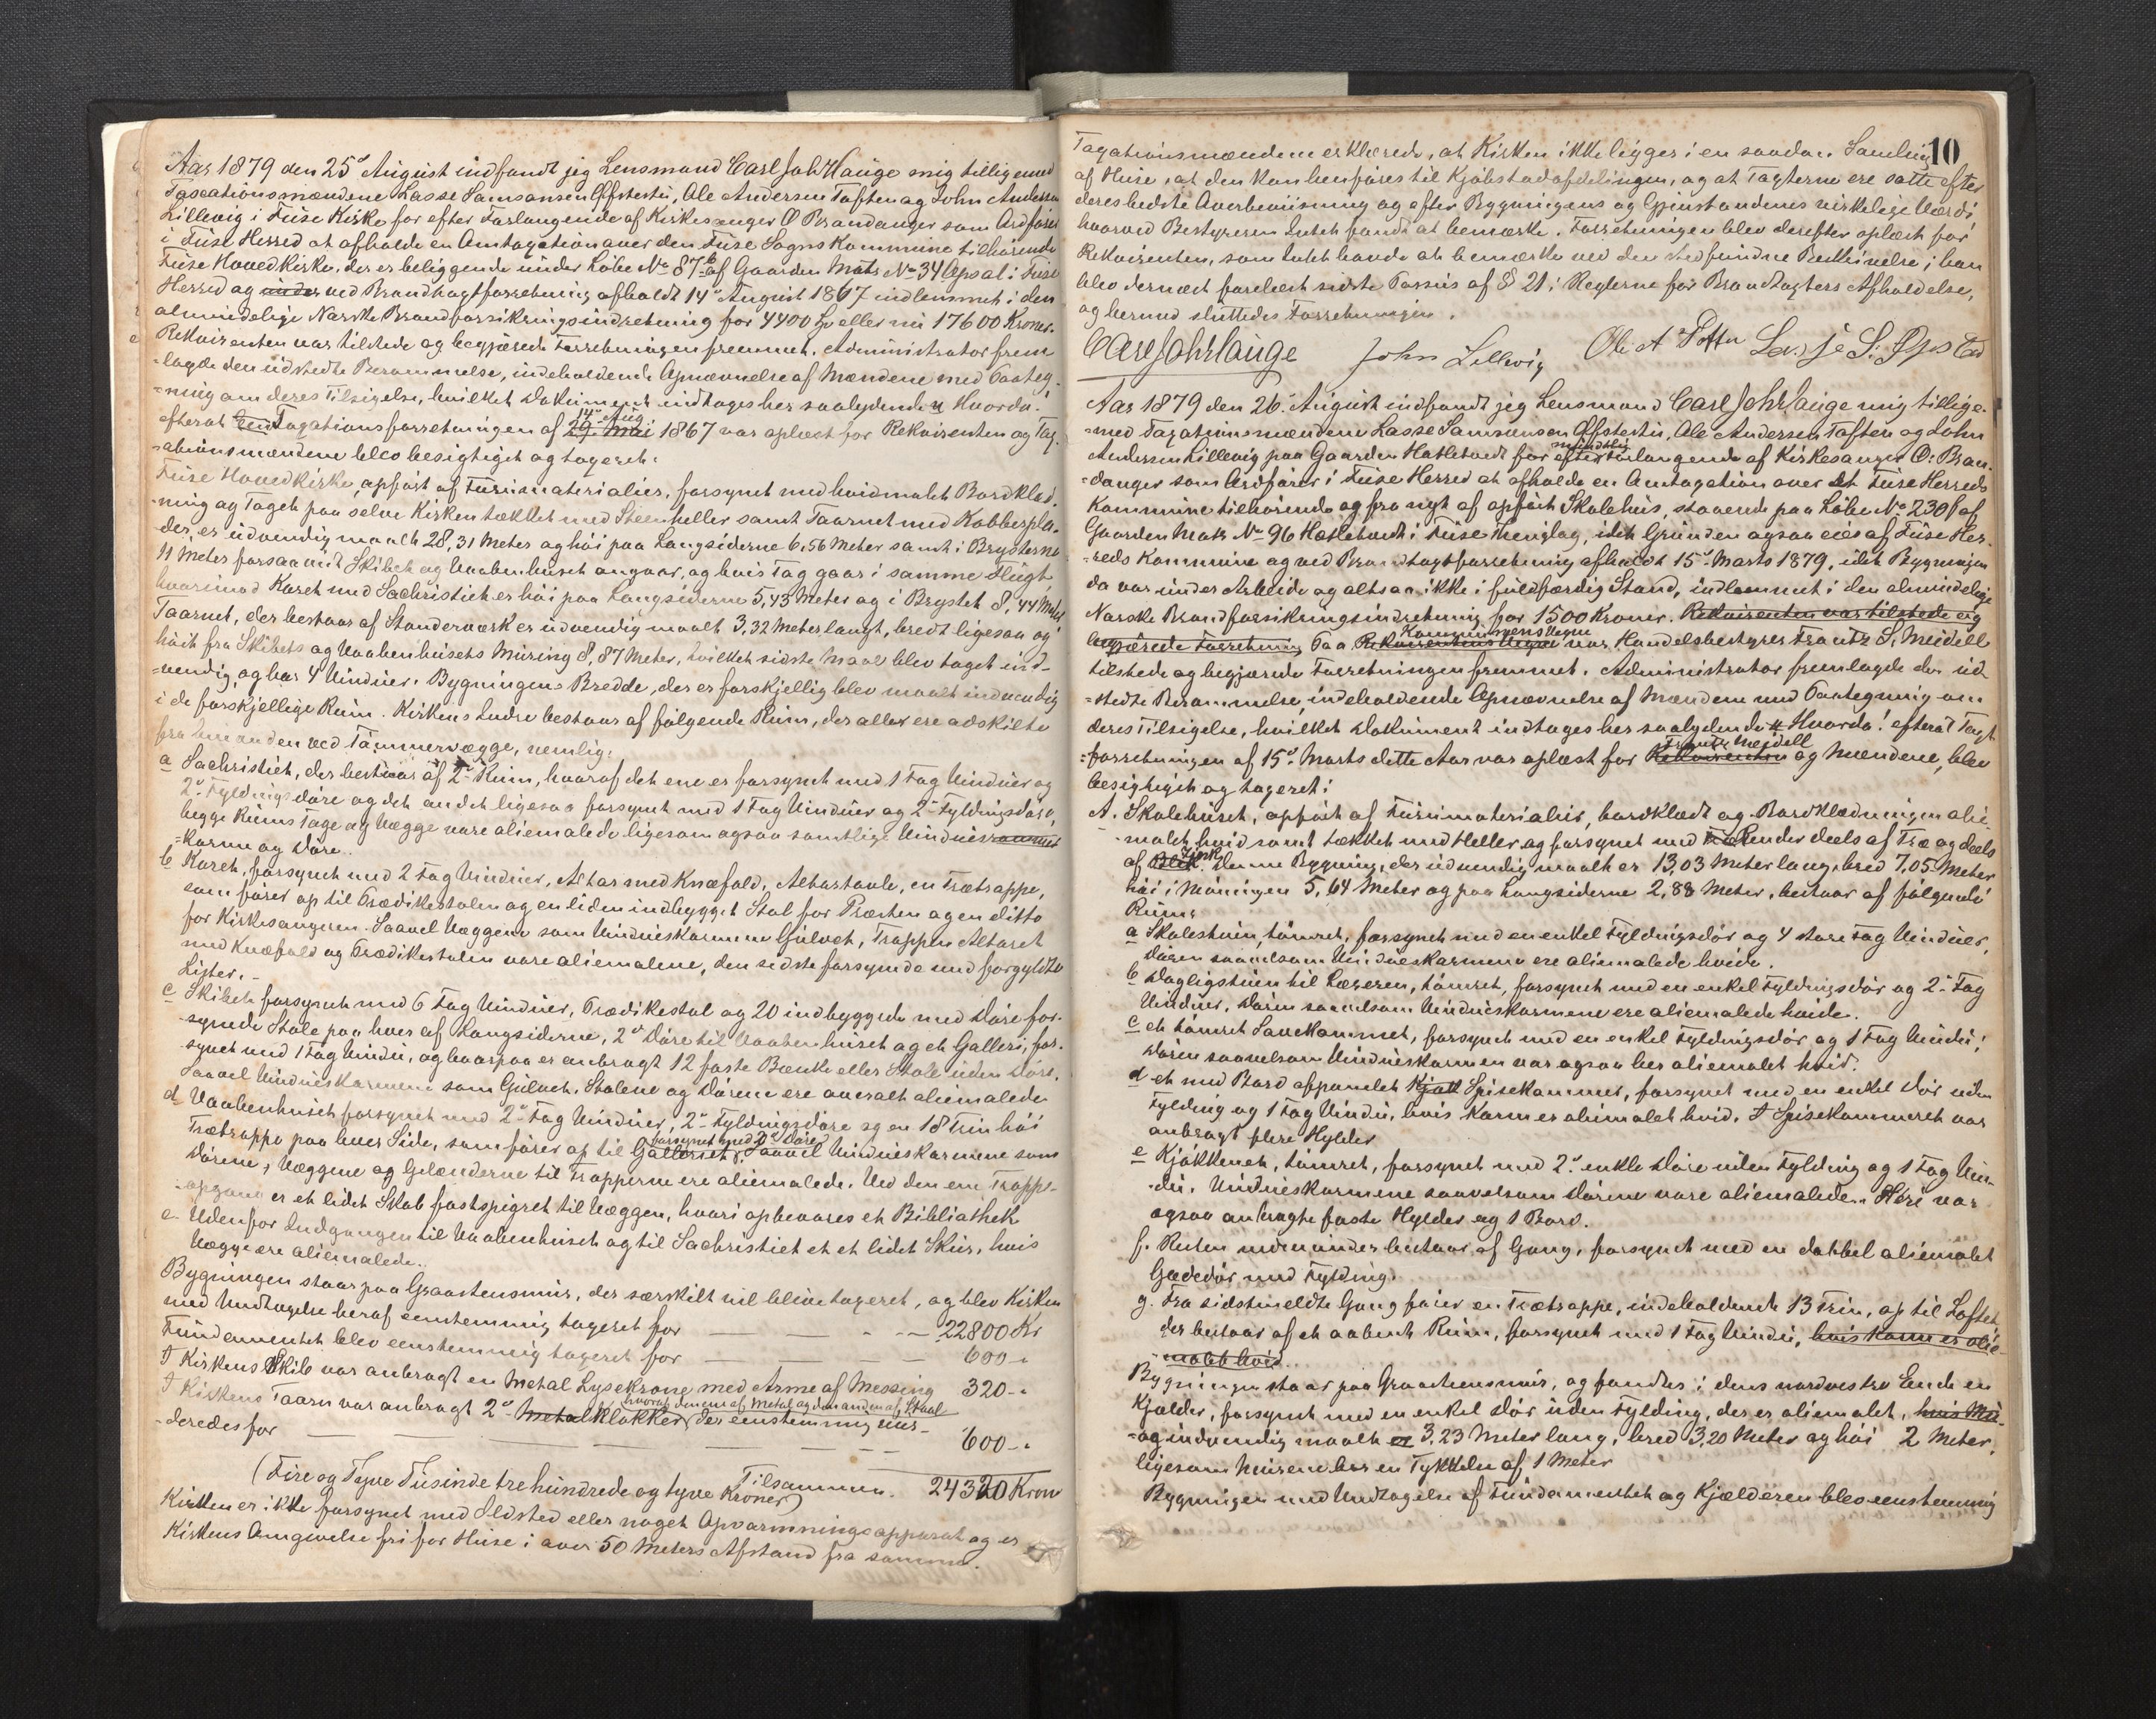 Aar 1879 den 25de August indfandt jeg Lensmand Carl Joh Hauge mig tilligemed
Taxationsmændene Lasse Samsonsen Øfstestu, Ole Andersen Toften og John Andersen
Lillevig i Fuse Kirke for efter Forlangende af Kirkesanger O Brandanger som Ordfører
i Fuse Herred at afholde en Omtaxation over den Fuse Sogns Kommune tilhørende
Fuse Hovedkirke, der er beliggende under Løbe No 87b af Gaarden Matr No 34 Opsal i Fuse
Herred og under ved Brandtaxtforretning afholdt 14de August 1867 indlemmet i den
almindelige Norske Brandforsikringsindretning for 4400 Spd eller nu 17600 Kroner.
Rekvirenten var tilstede og begjærede Forretningen fremmet. Administrator frem
=lagde den udstedte Berammelse, indeholdende Opnævnelse af Mændene med Paateg-
=ning om deres Tilsigelse, hvilket Dokument indtages her saalydende " Hvorda!
14de Aug
efterat Taxationsforretningen af 29. Mai 1867 var oplæst for Rekvirenten og Tax-
=ationsmændene blev besigtiget og taxeret:
Fuse Hovedkirke, opført af Furumaterialier, forsynet med hvidmalet Bordklæd-
ning og Taget paa selve Kirken tækket med Steenheller samt Taarnet med Kobberpla-
der, er udvendig maalt 28,31 Meter og høi paa Langsiderne 6,56 Meter samt i Brysterne
11 Meter forsaavidt Skibet og Vaabenhuset angaar, og hvis Tag gaar i samme Flugt
hvorimod Koret med Sachristiet er høi paa Langsiderne 5,43 Meter og i Brystet 8,44 Meter
Taarnet, der bestaar af Standerværk er udvendig maalt 3,32 Meter langt, bredt ligesaa og
høit fra Skibets og Vaabenhusets Møning 8,87 Meter, hvilket sidste Maal blev taget ind-
=vendig, og har 4 Vinduer. Bygningens Bredde, der er forskjellig blev maalt indvendig
i de forskjellige Rum. Kirkens Indre bestaar af følgende Rum, der alle ere adskilte
fra hverandre ved Tømmervægge, nemlig:
a Sachristiet, der bestaar af 2de Rum, hvoraf det ene er forsynet med 1 Fag Vinduer og
2de Fyldningsdøre og det andet ligesaa forsynet med 1 Fag Vinduer og 2de Fyldningsdøre,
begge Rums Tage og Vægge vare oliemalede ligesom ogsaa samtlige Vindues
=karme og Døre.
b Koret, forsynet med 2 Fag Vinduer, Altar med Knæfald, Altertavle, en Trætrappe,
som fører op til Prædikestolen og en liden indbygget Stol for Præsten og en ditto
for Kirkesangeren. Saavel Væggene som Vindueskarmene Gulvet, Trappen Alteret
med Knæfald og Prædikestolen vare oliemalene, den sidste forsynede med forgyldte
Lister.-
c Skibet forsynet med 6 Fag Vinduer, Prædikestol og 20 indbyggede med Døre for-
synede Stole paa hver af Langsiderne, 2de Døre til Vaabenhuset og et Galleri, for-
synet med 1 Fag Vindu, og hvorpaa er anbragt 12 faste Bænke eller Stole uden Døre.
Saavel Vindueskarmene som Gulvet, Stolene og Dørene ere overalt oliemalede
d Vaabenhuset forsynet med 2de Fag Vinduer, 2de Fyldningsdøre og en 18 Trin høi
Trætrappe paa hver Side, som fører op til Galleriet. Saavel Vindueskarmene som
forsynet med 2de Døre
Dørene, Væggene og Gelænderne til Trapperne ere oliemalede. Ved den ene Trappe-
=opgang er et lidet Skab fastspigret til Væggen, hvori opbevares et Bibliothek
e. Udenfor Indgangen til Vaabenhuset og til Sachristiet et et lidet Skur, hvis
Vægge ere oliemalede.
Bygningen staar paa Graastensmur, der særskilt vil blive taxeret, og blev Kirken
med Undtagelse heraf eenstemmig taxeret for — 22800 Kr
Fundamentet blev eenstemmig taxeret for — 600 "
I Kirkens Skib var anbragt en Metal Lysekrone med Arme af Messing 320 "
hvoraf den ene af Metal og den anden af Staal
I Kirkens Taarn var anbragt 2de Metal Klokker der eenstemmig vur-
=deredes for — 600 "
Tilsammen 24320 Kroner
(Fire og Tyve Tusinde trehundrede og tyve Kroner)
Kirken er ikke forsynet med Ildsted eller noget Opvarmningsapparat og er
Kirkens Omgivelse fri for Huse i over 50 Meters Afstand fra samme.
10
Taxationsmændene erklærede, at Kirken ikke ligger i en saadan Samling
af Huse, at den kan henføres til Kjøbstadafdelingen, og at Taxterne ere satte efter
deres bedste Overbeviisning og efter Bygningens og Gjenstandenes virkelige Værdi
hvorved Bestyreren Intet fandt at bemærke. Forretningen blev derefter oplæst for
Rekvirenten, som Intet havde at bemærke ved den stedfundne Beskrivelse; han
blev dernæst forelæst sidste Passus af § 21 i Reglerne for Brandtaxters Afholdelse,
og hermed sluttedes Forretningen.
Carl Joh Hauge John Lillevig Ole A Toften Lasse S. Øfstestu
Aar 1879 den 26de August indfandt jeg Lensmand Carl Joh Hauge mig tillige-
=med Taxationsmændene Lasse Samsonsen Øfstestu, Ole Andersen Toften og John
mundtlig
Andersen Lillevig paa Gaarden Hatletvedt for efter Forlangende af Kirkesanger O. Bran-
=danger som Ordfører i Fuse Herred at afholde en Omtaxation over et Fuse Herreds
Kommune tilhørende og fra nyt af opført Skolehus, staaende paa Løbe No 230b af
Gaarden Matr No 96 Hatletvedt i Fuse Thinglag, idet Grunden ogsaa eies af Fuse Her-
=reds Kommune og ved Brandtaxtforretning afholdt 15de Marts 1879, idet Bygningen
da var under Arbeide og altsaa ikke i fuldfærdig Stand, indlemmet i den almindelige
Norske Brandforsikringsindretning for 1500 Kroner. Rekvirenten var tilstede og
Kommunens Vegne
begjærede Forretning Paa Rekvirentens Vegne var Handelsbestyrer Frantz S. Meidell
tilstede og begjærede Forretningen fremmet. Administrator fremlagde den ud-
=stedte Berammelse, indeholdende Opnævnelse af Mændene med Paategning om
deres Tilsigelse, hvilket Dokument indtages her saalydende " Hvorda! efterat Taxt
Frantz Meidell
=forretningen af 15de Marts dette Aar var oplæst for Rekvirenten og Mændene, blev
besigtiget og taxeret:
A. Skolehuset, opført af Furumaterialier, bordklædt og Bordklædningen olie-
malet hvid samt tækket med Heller og forsynet med Render deels af Træ og deels
Zink
af Blik. Denne Bygning, der udvendig maalt er 13,03 Meter lang, bred 7,05 Meter
høi i Møningen 5,64 Meter og paa Langsiderne 2,88 Meter, bestaar af følgende
Rum:
a Skolestuen, tømret, forsynet med en enkel Fyldningsdør og 4 store Fag Vinduer,
Døren saavelsom Vindueskarmene ere oliemalede hvide.
b Dagligstuen til Læreren, tømret, forsynet med en enkel Fyldningsdør og 2de Fag
Vinduer, Døren saavelsom Vindueskarmene ere oliemalede hvide.
c et tømret Sovekammer, forsynet med en enkel Fyldningsdør og 1 Fag Vindu;
Døren saavelsom Vindueskarmen var ogsaa her oliemalet hvid.
d et med Bord afpanelet Spisekammer, forsynet med en enkel Dør uden
Fylding og 1 Fag Vindu, hvis Karm er oliemalet hvid. I Spisekammeret var
anbragt flere Hylder
e Kjøkkenet, tømret, forsynet med 2de enkle Døre uden Fylding og 1 Fag Vin-
du. Vindueskarmene saavelsom Dørene vare oliemalede. Heri var
ogsaa anbragte faste Hylder og 1 Bord.
f. Resten nedenunder bestaar af Gang, forsynet med en dobbel oliemalet
Gadedør med Fylding.
g. Fra sidstmeldte Gang fører en Trætrappe, indeholdende 13 Trin, op til Loftet
der bestaar af et aabent Rum, forsynet med 1 Fag Vindu, hvis Karm er olie-
malet hvid.
Bygningen staar paa Graastensmur, og fandtes i dens nordvestre Ende en
Kjælder, forsynet med en enkel Dør uden Fylding, der er oliemalet, hvis Mu-
=og indvendig maalt er 3,23 Meter lang, bred 3,20 Meter og høi 2 Meter,
ligesom Muren har en Tykkelse af 1 Meter
Bygningen med Undtagelse af Fundamentet og Kjælderen blev eenstemmig